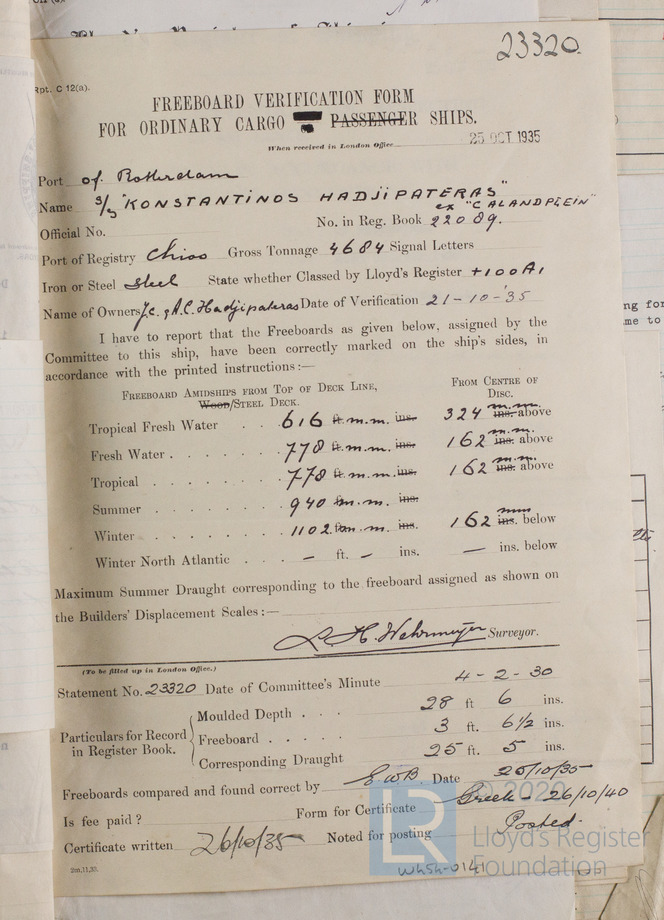 23320
Rpt. C 12(a).
FREEBOARD VERIFICATION FORM
FOR ORDINARY CARGO PASSENGER SHIPS.
When received in London Office 25 OCT 1935
Port of Rotterdam
Name S/S "KONSTANTINOS HADJIPATERAS"
ex "CALANDPLEIN"
Official No. No. in Reg. Book 22089.
Port of Registry Chios Gross Tonnage 4684 Signal Letters
Iron or Steel Steel State whether Classed by Lloyd's Register +100A1
Name of Owners J.C. & A.C. Hadjipateras Date of Verification 21-10-'35
I have to report that the Freeboards as given below, assigned by the
Committee to this ship, have been correctly marked on the ship's sides, in
accordance with the printed instructions:—
FREEBOARD AMIDSHIPS FROM TOP OF DECK LINE, FROM CENTRE OF
WOOD/STEEL DECK. DISC.
Tropical Fresh Water . . . 616 ft. m.m. ins. 324 m.m. ins. above
Fresh Water . . . . . . 778 ft. m.m. ins. 162 m.m. ins. above
Tropical . . . . . . . 778 ft. m.m. ins. 162 m.m. ins. above
Summer . . . . . . . 940 m.m. ins.
Winter . . . . . . . 1102 m.m. ins. 162 mm ins. below
Winter North Atlantic . . . – ft. – ins. — ins. below
Maximum Summer Draught corresponding to the freeboard assigned as shown on
the Builders' Displacement Scales:—
Wehrmeyer Surveyor.
(To be filled up in London Office.)
Statement No. 23320 Date of Committee's Minute 4-2-30
Particulars for Record in Register Book.
Moulded Depth . . . 28 ft 6 ins.
Freeboard . . . . . 3 ft. 6½ ins.
Corresponding Draught 25 ft. 5 ins.
Freeboards compared and found correct by EWB. Date 25/10/35
Is fee paid? Form for Certificate Greek - 26/10/40
Certificate written 26/10/35 Noted for posting Posted.
2m,11,33.
LR
Lloyd's Register
Foundation